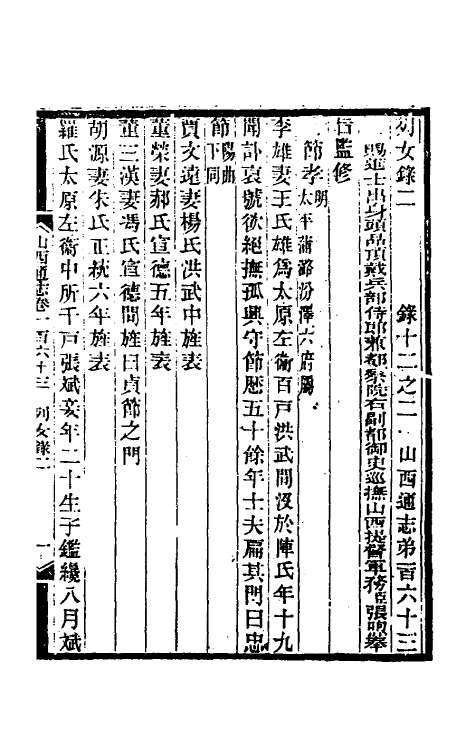 列女錄二　錄十二之二　山西通志弟百六十三
賜進士出身頭品頂戴兵部侍郎兼都察院右副都御史巡撫山西提督軍務臣張煦舉
旨監修
節孝明太平蒲潞汾澤六府屬
李雄妻王氏雄爲太原左衛百戸洪武間沒於陣氏年十九
聞訃哀號欲絕撫孤興守節歷五十餘年士夫扁其門曰忠
節陽曲下同
賈文遠妻楊氏洪武中旌表
董榮妻郝氏宣德五年旌表
董三漢妻馮氏宣德間旌曰貞節之門
胡源妻朱氏正統六年旌表
羅氏太原左衛中所千戸張斌妾年二十生子鑑纔八月斌
山西通志卷一百六十三　列女錄二　一